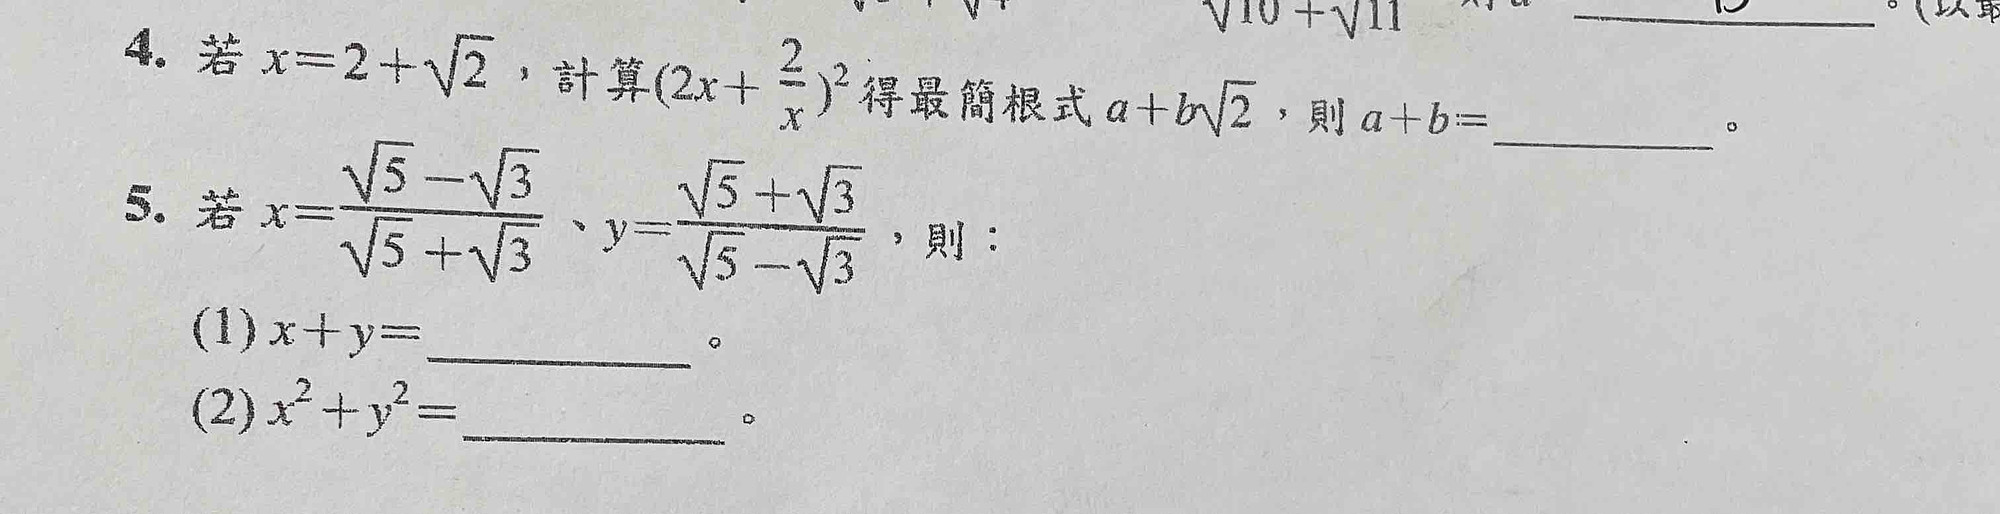 √10+√11 。(以最
4. 若 x=2+√2，計算(2x+ 2/x )² 得最簡根式 a+b√2，則 a+b=________。
5. 若 x=(√5−√3)/(√5+√3)、y=(√5+√3)/(√5−√3)，則：
(1) x+y=________。
(2) x²+y²=________。